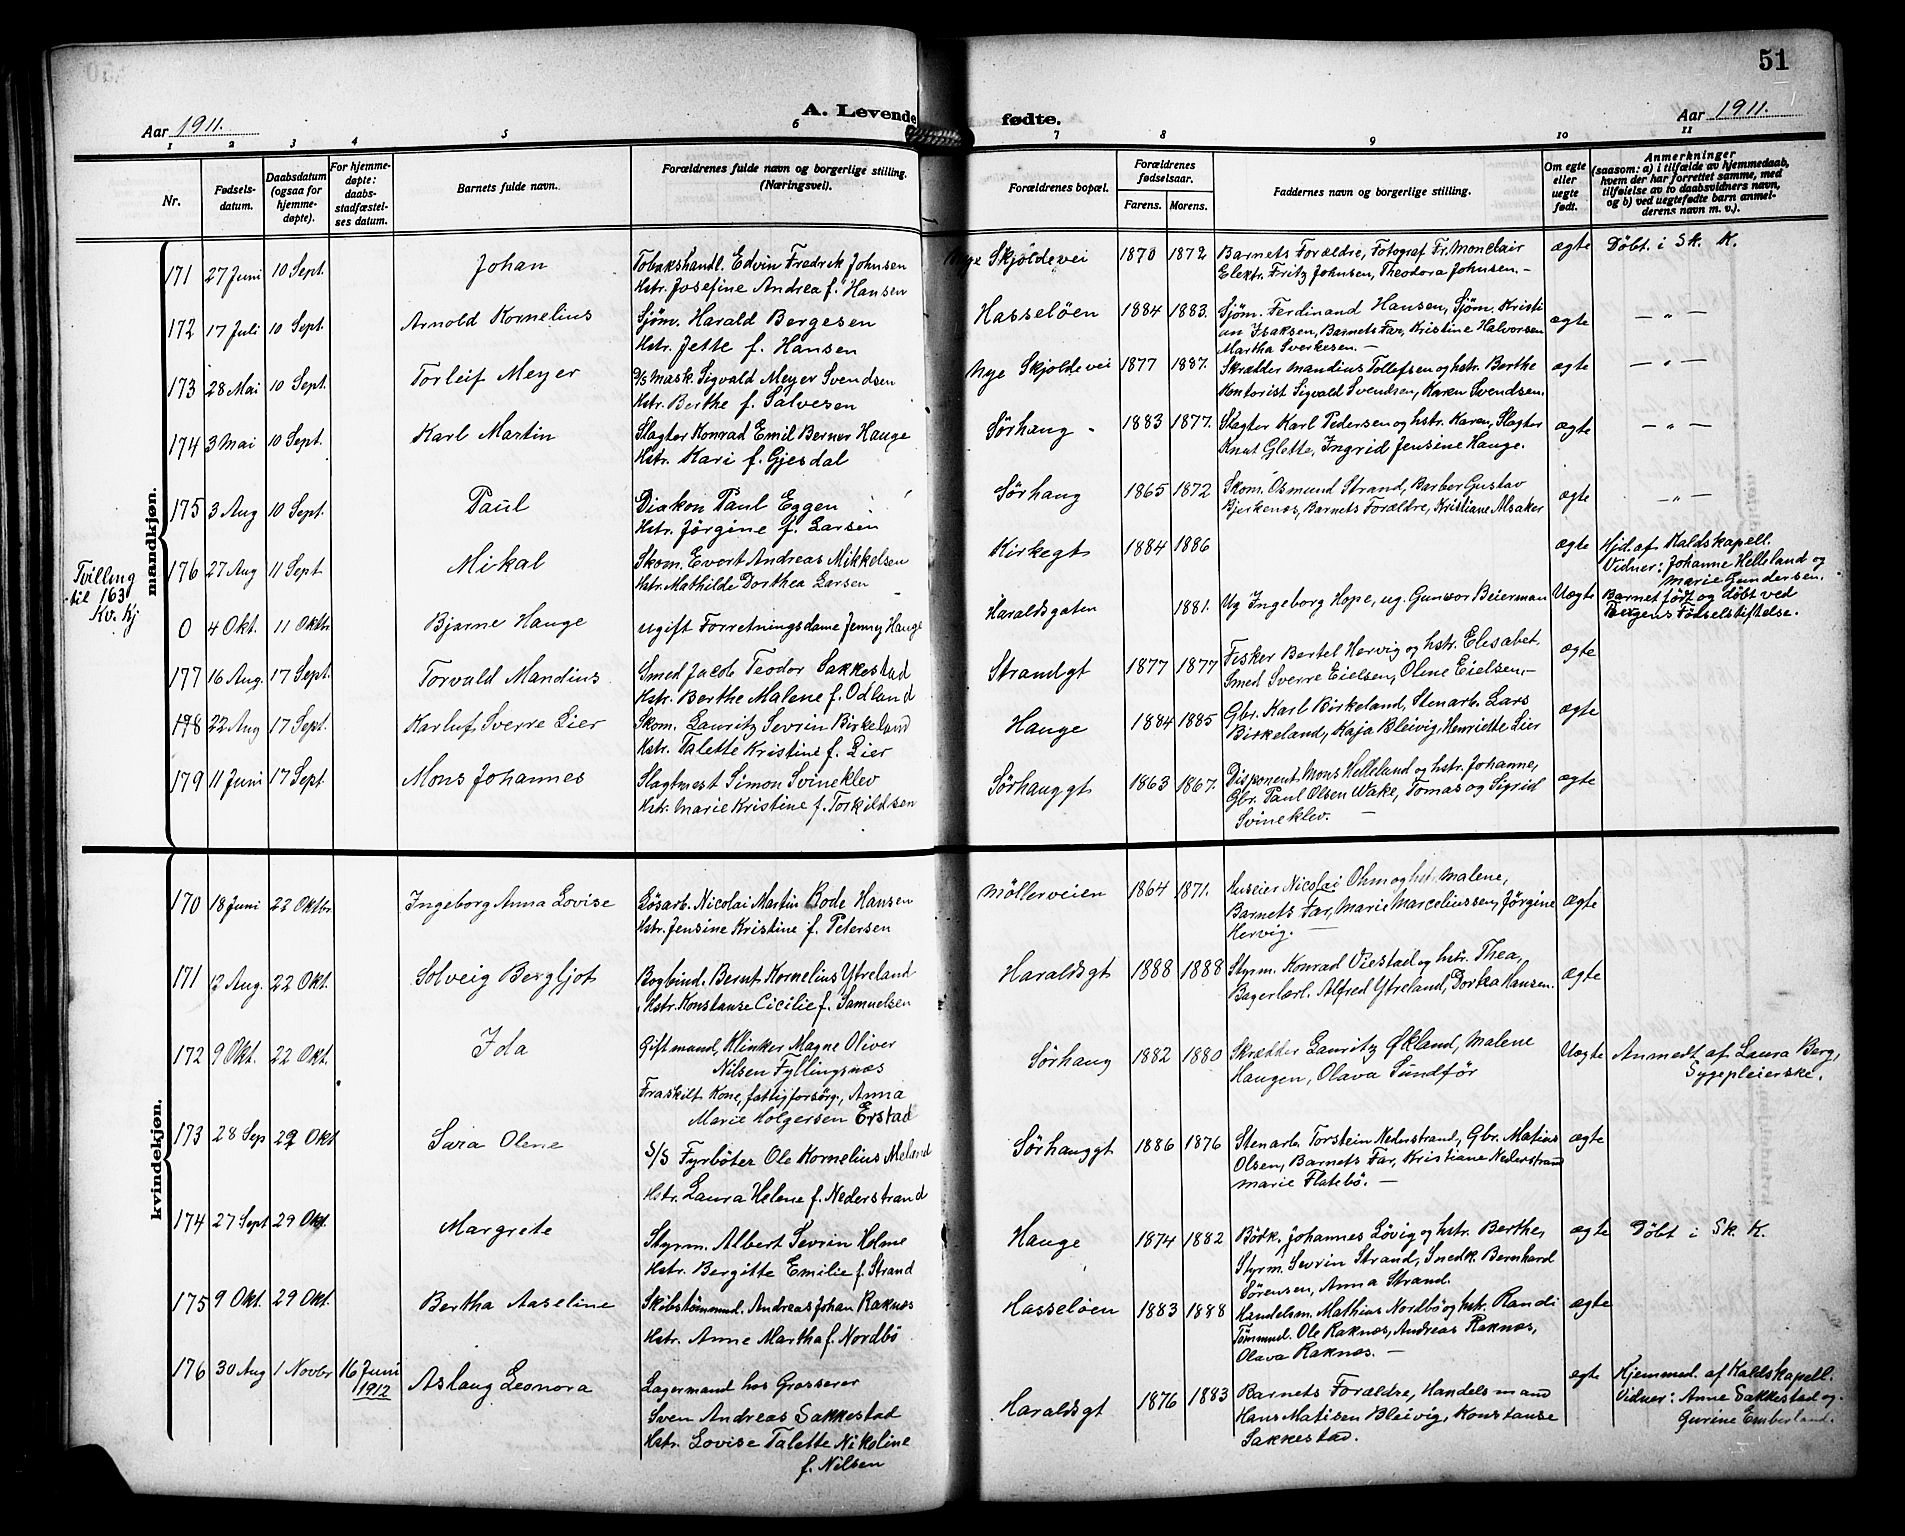 51
Aar 1911.
A. Levende fødte.
Aar 1911.
1 2 3 4 5 6 7 8 9 10 11
Nr.
Fødsels-
datum.
Daabsdatum
(ogsaa for
hjemme-
døpte).
For hjemme-
døpte:
daabs-
stadfæstel-
ses datum.
Barnets fulde navn.
Forældrenes fulde navn og borgerlige stilling.
(Næringsvei).
Forældrenes bopæl.
Forældrenes
fødselsaar.
Farens. Morens.
Faddernes navn og borgerlige stilling.
Om egte
eller
uegte
født.
Anmerkninger
(saasom: a) i tilfælde av hjemmedaab,
hvem der har forrettet samme, med
tilføielse av to daabsvidners navn,
og b) ved uegtefødte barn anmel-
derens navn m. v.).
mandkjøn.
171 27 Juni 10 Sept. Johan
Tobakshandl. Edvin Fredrik Johnsen
Hstr. Josefine Andrea f. Hansen
Nye Skjoldevei 1870 1872
Barnets Forældre, Fotograf Fr. Monclair
Elektr. Fritz Johnsen, Theodora Johnsen. -
ægte Døbt i Sk. K.
172 17 Juli 10 Sept. Arnold Kornelius
Sjøm. Harald Bergesen
Hstr. Jette f. Hansen
Hasseløen 1884 1883.
Sjøm. Ferdinand Hansen, Sjøm. Kristi
an Isaksen, Barnets Far, Kristine Halvorsen
Martha Sverkesen. -
ægte - " -
173 28 Mai 10 Sept. Torleif Meyer
D/S Mask. Sigvald Meyer Svendsen
Hstr. Berthe f. Salvesen
Nye Skjoldevei 1877 1887.
Skrædder Mandius Tollefsen og hstr. Berthe
Kontorist Sigvald Svendsen, Karen Svendsen.
ægte - " -
174 3 Mai 10 Sept. Karl Martin
Slagter Konrad Emil Berner Hauge
Hstr. Kari f. Gjesdal
Sørhaug - 1883 1877.
Slagter Karl Pedersen og hstr. Karen, Slagter
Knut Glette, Ingrid Jensine Hauge.
ægte - " -
175 3 Aug 10 Sept. Paul
Diakon Paul Eggen
Hstr. Jørgine f. Larsen
Sørhaug 1865 1872
Skom. Osmund Strand, Barber Gustav
Bjerkenæs, Barnets Forældre, Kristiane Alsaker
ægte - " -
Tvilling
til 163
Kv. Kj
176 27 Aug 11 Sept Mikal
Skom. Evert Andreas Mikkelsen
Hstr. Mathilde Dorthea Larsen
Kirkegt 1884 1886
ægte Hjd. af Kaldskapell.
Vidner: Johanne Helleland og
Marie Gundersen.
0 4 Okt. 11 Oktbr Bjarne Hauge
ugift Forretningsdame Jenny Hauge
Haraldsgaten 1881.
Ug Ingeborg Hope, ug. Gunvor Beierman
Uægte Barnet født og døbt ved
Bergens Fødselsstiftelse.
177 16 Aug. 17 Sept. Torvald Mandius
Smed Jacob Teodor Sakkestad
Hstr. Berthe Malene f. Odland
Strandgt 1877 1877
Fisker Bertel Hervig og hstr. Elisabet.
Smed Sverre Eielsen, Olene Eielsen. -
ægte
178 22 Aug 17 Sept. Karluf Sverre Lier
Skom. Lauritz Sevrin Birkeland
Hstr. Talette Kristine f. Lier
Hauge 1884 1885
Gbr. Karl Birkeland, Stenarb. Lars
Birkeland, Kaja Bleivig, Henriette Lier
ægte
179 11 Juni 17 Sept. Mons Johannes
Slagtmest Simon Svineklev
Hstr. Marie Kristine f. Torkildsen
Sørhauggt 1863 1867.
Disponent Mons Helleland og hstr. Johanne,
Gbr. Paul Olsen Wake, Tomas og Sigrid
Svineklev. -
ægte
kvindekjøn.
170 18 Juni 22 Oktbr Ingeborg Anna Lovise
Løsarb. Nicolai Martin Bode Hansen
Hstr. Jensine Kristine f. Petersen
Møllerveien 1864 1871.
Huseier Nicolai Ohm og hst. Malene,
Barnets Far, Marie Marceliussen, Jørgine
Hervig. -
ægte
171 12 Aug. 22 Okt. Solveig Bergljot
Bogbind. Bernt Kornelius Ytreland
Hstr. Konstanse Cicilie f. Samuelsen
Haraldsgt 1888 1888
Styrm. Konrad Viestad og hstr. Thea,
Bagerlærl. Alfred Ytreland, Dorthea Hansen.
ægte
172 9 Okt. 22 Okt. Ida
Gift mand, Klinker Magne Oliver
Nilsen Fyllingsnæs
Fraskilt Kone, fattigforsørg., Anna
Marie Holgersen Erstad
Sørhaug 1882 1880
Skrædder Lauritz Økland, Malene
Haugen, Olava Sundfør
Uægte Anmedt af Laura Berg,
Sygepleierske.
173 28 Sep 29 Okt Sara Olene
S/S Fyrbøter Ole Kornelius Meland
Hstr. Laura Helene f. Nederstrand
Sørhauggt 1886 1876
Stenarb. Torstein Nederstrand, Gbr. Matius
Olsen, Barnets Far, Kristiane Nederstrand
Marie Flatebø. -
ægte
174 27 Sept 29 Okt Margrete
Styrm. Albert Sevrin Holme
Hstr. Bergitte Emilie f. Strand
Hauge 1874 1882
Bødk. Johannes Løvig og hstr. Berthe,
Styrm. Sevrin Strand, Snedk. Bernhard
Sørensen, Anna Strand.
ægte Døbt i Sk. K.
175 9 Okt. 29 Okt. Bertha Aaseline
Skibstømmmd. Andreas Johan Raknæs
Hstr. Anne Martha f. Nordbø
Hasseløen 1883 1888
Handelsm. Mathius Nordbø og hstr. Randi
Tømmmd. Ole Raknæs, Andreas Raknæs,
Olava Raknæs. -
ægte
176 30 Aug 1 Novbr 16 Juni
1912
Aslaug Leonora
Lagermand hos Grosserer
Sven Andreas Sakkestad
Hstr. Lovise Talette Nikoline
f. Nilsen
Haraldsgt 1876 1883
Barnets Forældre, Handelsmand
Hans Matisen Bleivig, Konstanse
Sakkestad.
egte Hjemmed. af Kaldskapell.
Vidner: Anne Sakkestad og
Gurine Emberland.